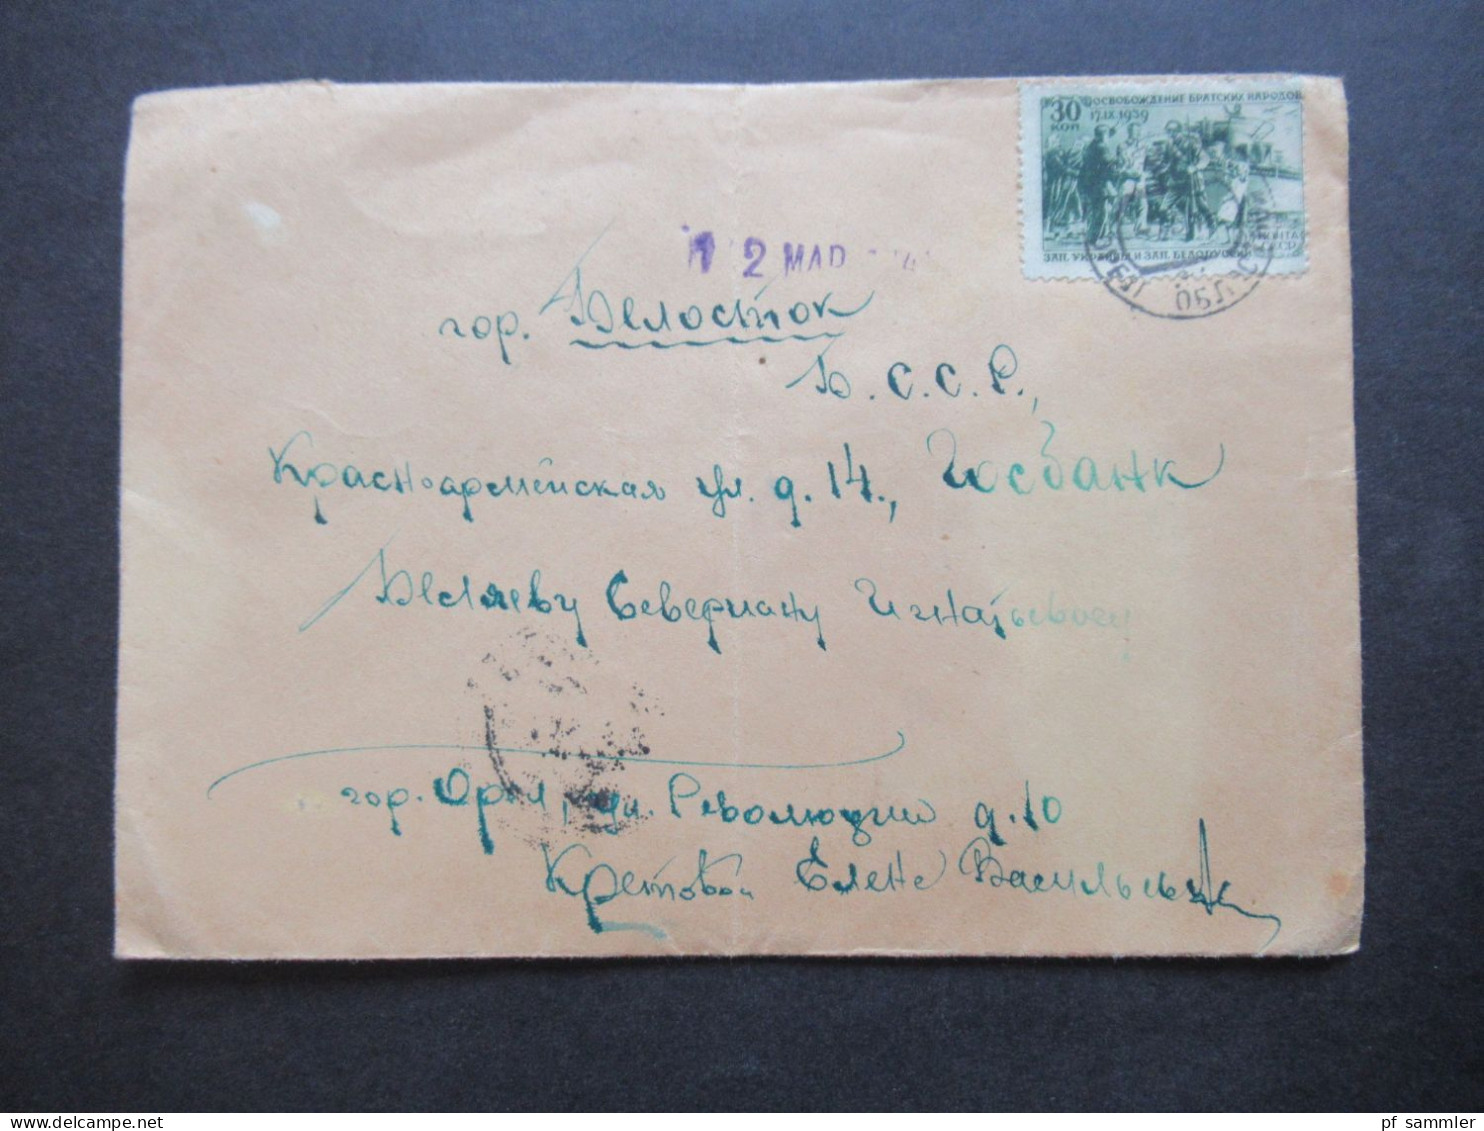 30 КОП
ОСВОБОЖДЕНИЕ БРАТСКИХ НАРОДОВ
17.IX.1939
ЗАП. УКРАИНЫ И ЗАП. БЕЛОРУССИИ
12 МАР
гор. Белосток
Б.С.С.Р.,
Красноармейская ул. д. 14., Госбанк
Беляеву Северману Игнатьевичу
гор. Орел, ул. Революции д. 10
Кретовой Елене Васильевне
pf sammler
www.delcampe.net